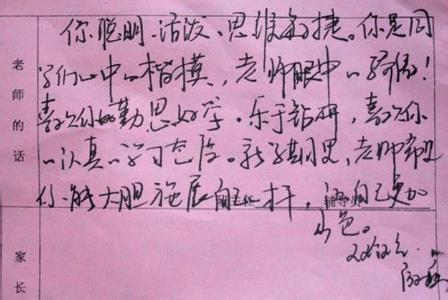 你聪明、活泼、思维敏捷。你是同
学们心中的楷模，老师眼中的骄傲！
喜欢你的勤思好学、乐于钻研，喜欢你
的认真的学习态度。新学期里，老师希望
你能大胆施展自己 才干，让自己更加
出色。
老师的话
家长